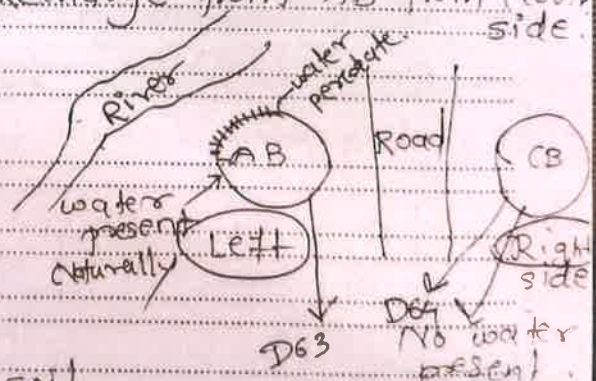 from
side.
River
water
percolate.
AB
Road
CB
water
present
Naturally
Left
Right
side
D63
D64
No water
present.